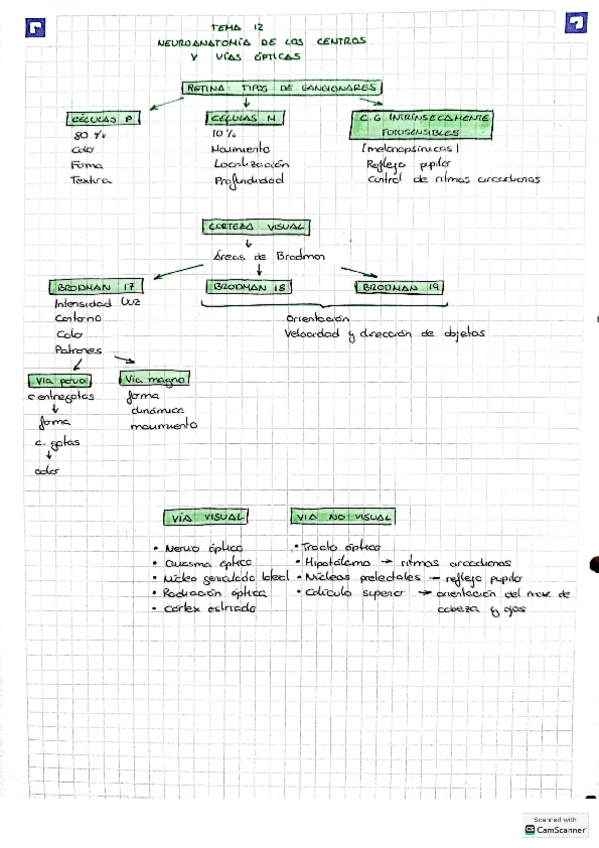 TEMA 12
NEUROANATOMÍA DE LOS CENTROS
Y VÍAS ÓPTICAS
RETINA: TIPOS DE GANGIONARES
CÉLULAS P
80 %
Color
Forma
Textura
CÉLULAS M
10 %
Movimiento
Localización
Profundidad
C.G INTRÍNSECAMENTE
FOTOSENSIBLES
(melanopsínicas)
Reflejo pupilar
Control de ritmos circadianos
CORTEZA VISUAL
Áreas de Brodman
BRODMAN 17
Intensidad luz
Contorno
Color
Patrones
BRODMAN 18
BRODMAN 19
Orientación
Velocidad y dirección de objetos
Vía parvo
c. entregotas
forma
c. gotas
color
Vía magno
forma
dinámica
movimiento
VÍA VISUAL
• Nervio óptico
• Quiasma óptico
• Núcleo geniculado lateral
• Radiación óptica
• Córtex estriado
VIA NO VISUAL
• Tracto óptico
• Hipotálamo → ritmos circadianos
• Núcleos pretectales → reflejo pupilar
• Colículo superior → orientación del mov de
cabeza y ojos
Scanned with
CamScanner